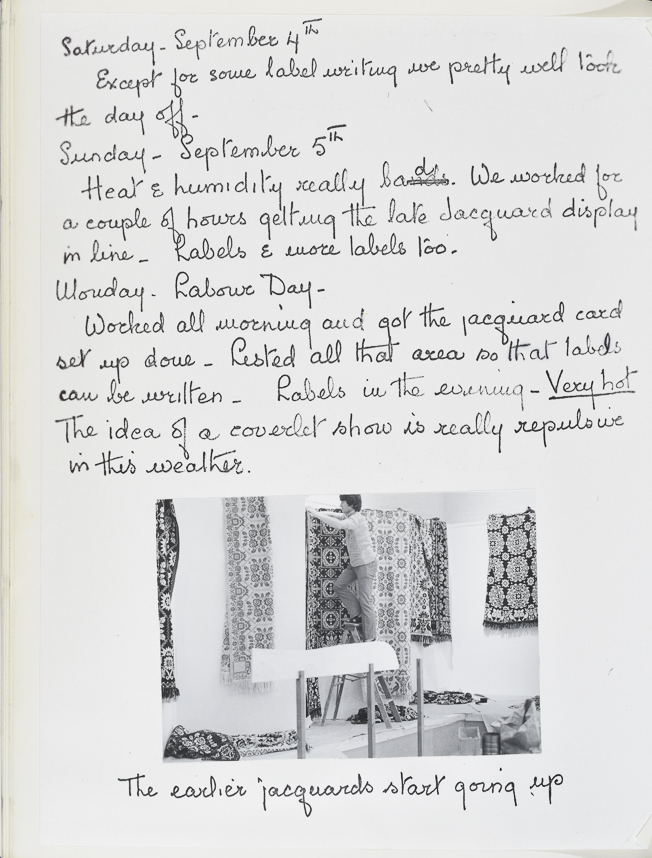 Saturday - September 4th
Except for some label writing we pretty well took
the day off -
Sunday - September 5th
Heat & humidity really bad. We worked for
a couple of hours getting the late Jacquard display
in line - Labels & more labels too.
Monday - Labour Day -
Worked all morning and got the jacquard card
set up done - Listed all that area so that labels
can be written - Labels in the evening - Very hot
The idea of a coverlet show is really repulsive
in this weather.
The earlier jacquards start going up